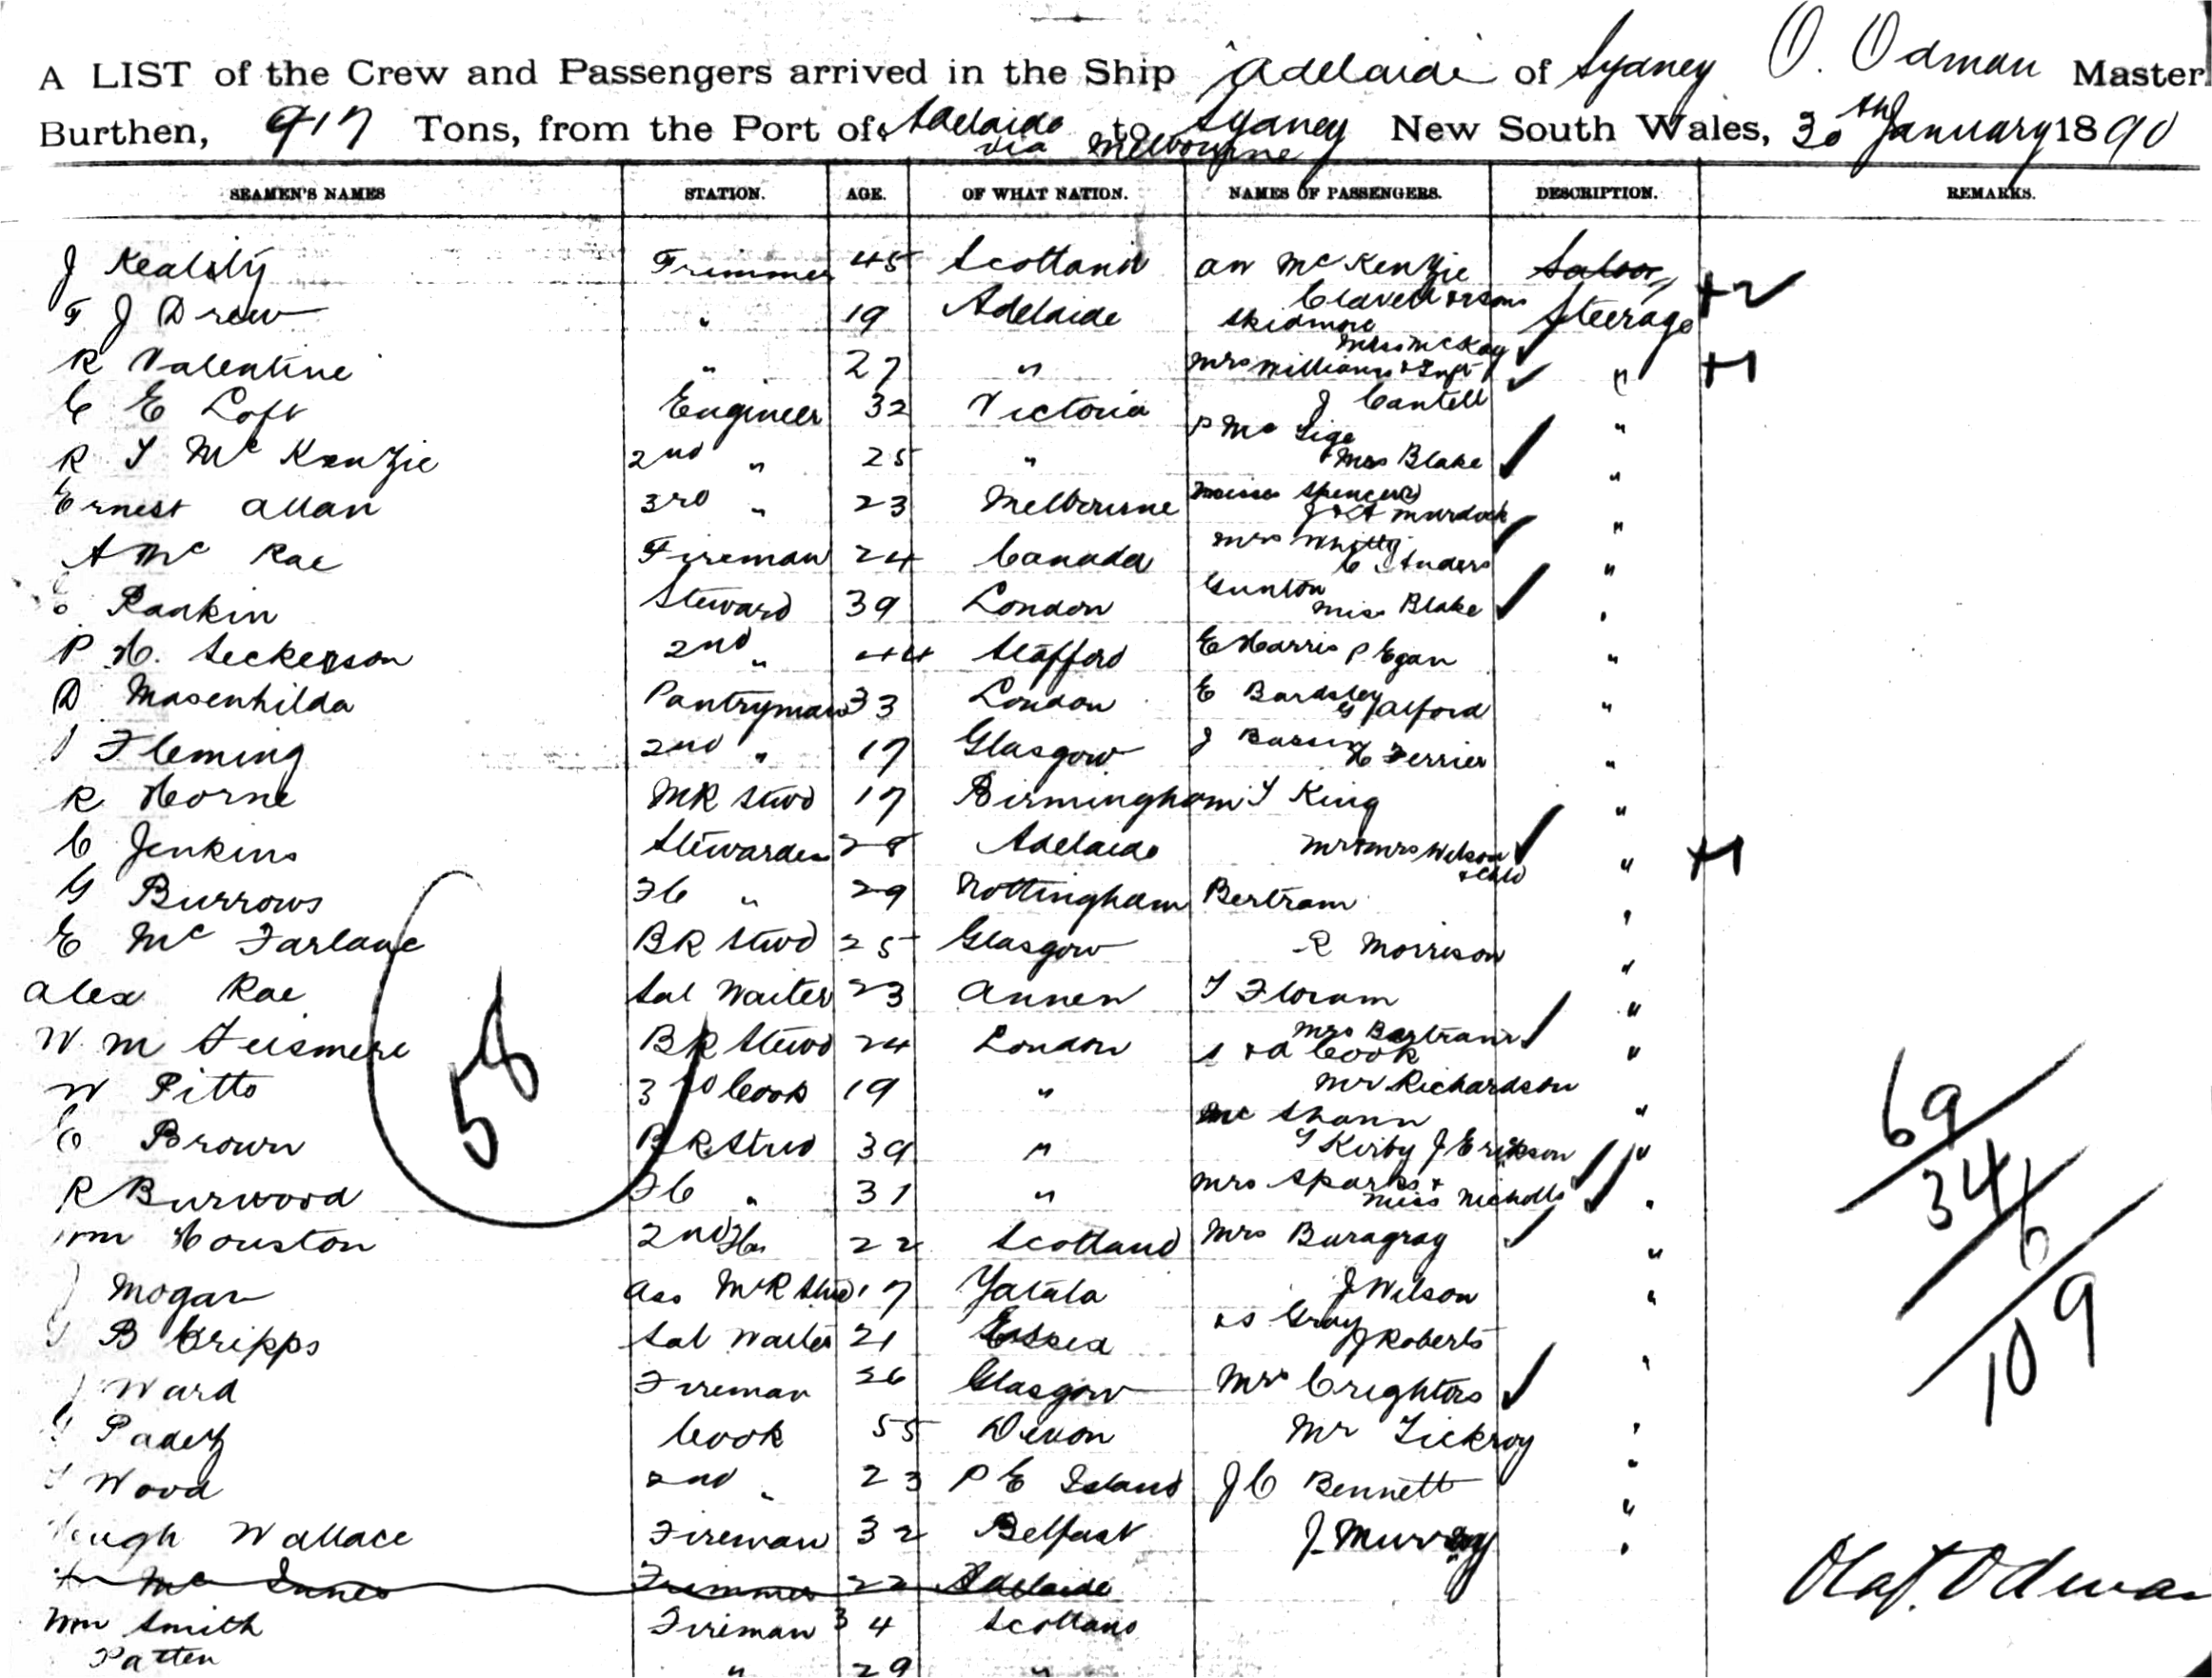 A LIST of the Crew and Passengers arrived in the Ship Adelaide of Sydney O. Odman Master
Burthen, 917 Tons, from the Port of Adelaide to Sydney New South Wales, 30th January 1890
via Melbourne
SEAMEN'S NAMES STATION. AGE. OF WHAT NATION. NAMES OF PASSENGERS. DESCRIPTION. REMARKS.
J Trimmer 45 Scotland McKenzie Saloon +2
F J Drew " 19 Adelaide Skidmore Steerage
R Valentine " 27 " Mrs Williams & Inft Mrs McKay " +1
C E Loft Engineer 32 Victoria J Cantell "
R McKenzie 2nd " 25 " P Mc Mrs Blake "
Ernest Allan 3rd " 23 Melbourne Misses Spencer J & A Murdock "
A Mc Rae Fireman 24 Canada Mrs Whitty C Anders "
Rankin Steward 39 London Gunton Miss Blake "
P H. Seckerson 2nd " 44 Stafford E Harris P Egan "
D Masenhilda Pantryman 33 London E Bardsley G Alford "
Fleming 2nd " 17 Glasgow J H Ferrier "
R Horne MR Stwd 17 Birmingham T King "
C Jenkins Stewardess 28 Adelaide Mr & Mrs Wilson & child " +1
G Burrows FC " 29 Nottingham Bertram "
E Mc Farlane BR Stwd 25 Glasgow R Morrison "
Alex Rae Sal Waiter 23 Annen T Floram "
W M BR Stwd 24 London Mrs Bertram S & A Cook "
W Pitts 3rd Cook 19 " Mr Richardson Mc Shann "
C Brown BR Stwd 39 " T Kirby J Erikson "
R Burwood FC " 31 " Mrs Sparks & Miss Nicholls "
Wm Houston 2nd 22 Scotland Mrs Buragray "
J Mogan Ass MR Stwd 17 Yatala J Wilson "
B Cripps Sal Waiter 21 Essex Gray J Roberts "
J Ward Fireman 26 Glasgow Mrs Crighton
Cook 55 Devon Mr "
T Wood 2nd " 23 P E Island J C Bennett "
Hugh Wallace Fireman 32 Belfast J. Murray "
Mc Innes Trimmer 22 Adelaide
Wm Smith Fireman 34 Scotland
Patten " 29 "
58
69
34
6
109
Olaf. Odman